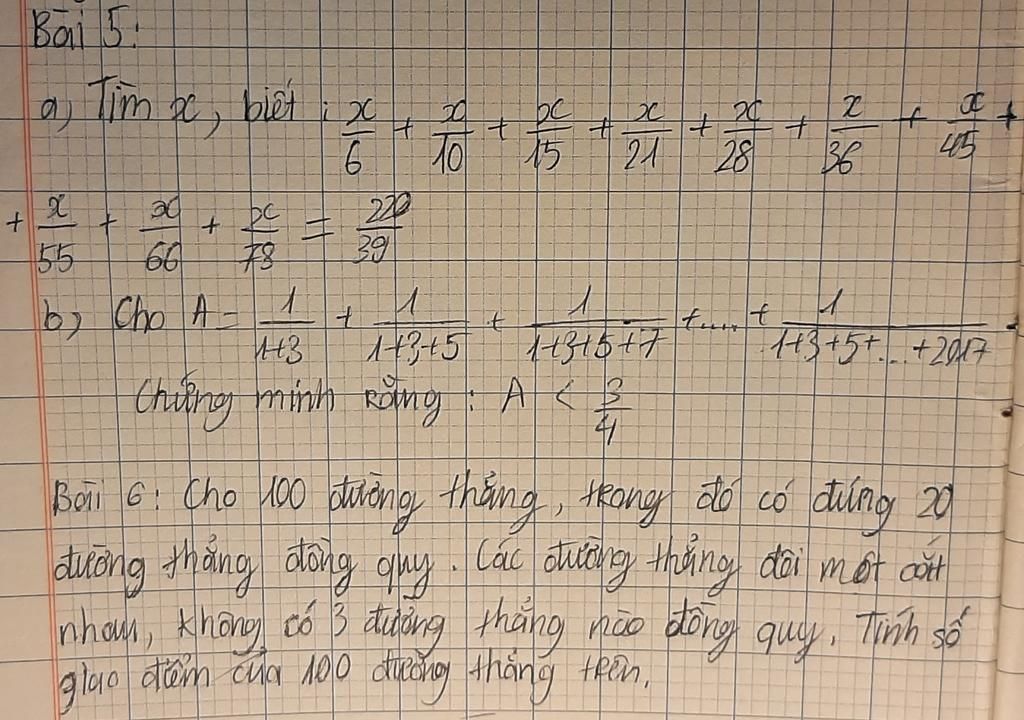 Bài 5:
a, Tìm x, biết: x/6 + x/10 + x/15 + x/21 + x/28 + x/36 + x/45 +
+ x/55 + x/66 + x/78 = 220/39
b, Cho A = 1/1+3 + 1/1+3+5 + 1/1+3+5+7 + .... + 1/1+3+5+...+2017
Chứng minh rằng: A < 3/4
Bài 6: Cho 100 đường thẳng, trong đó có đúng 20
đường thẳng đồng quy. Các đường thẳng đôi một cắt
nhau, không có 3 đường thẳng nào đồng quy. Tính số
giao điểm của 100 đường thẳng trên.